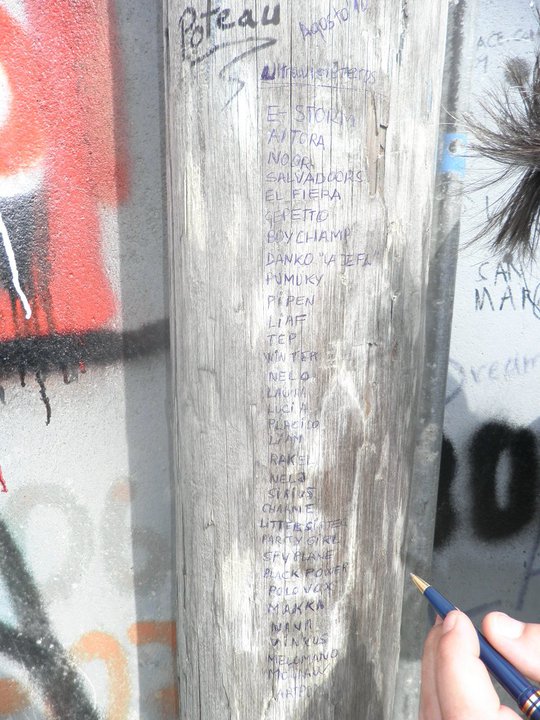 Poteau
Agosto
E-STORM
AITORA
NOGR
SALVADOORS
EL FIERA
GEPETTO
BOYCHAMP
DANKO "LA JEFA"
PUMUKY
PIPEN
LIAF
TEP
WINTER
NELO
LAURA
LUCIA
PLACIDO
LIAM
RAKEL
NELO
SIRIUS
CHARLIE
LITTLE SISTER
PARTY GIRL
SPY PLANE
BLACK POWER
POLO VOX
MAKKA
NANA
VINKUS
MELOMANO
Dream